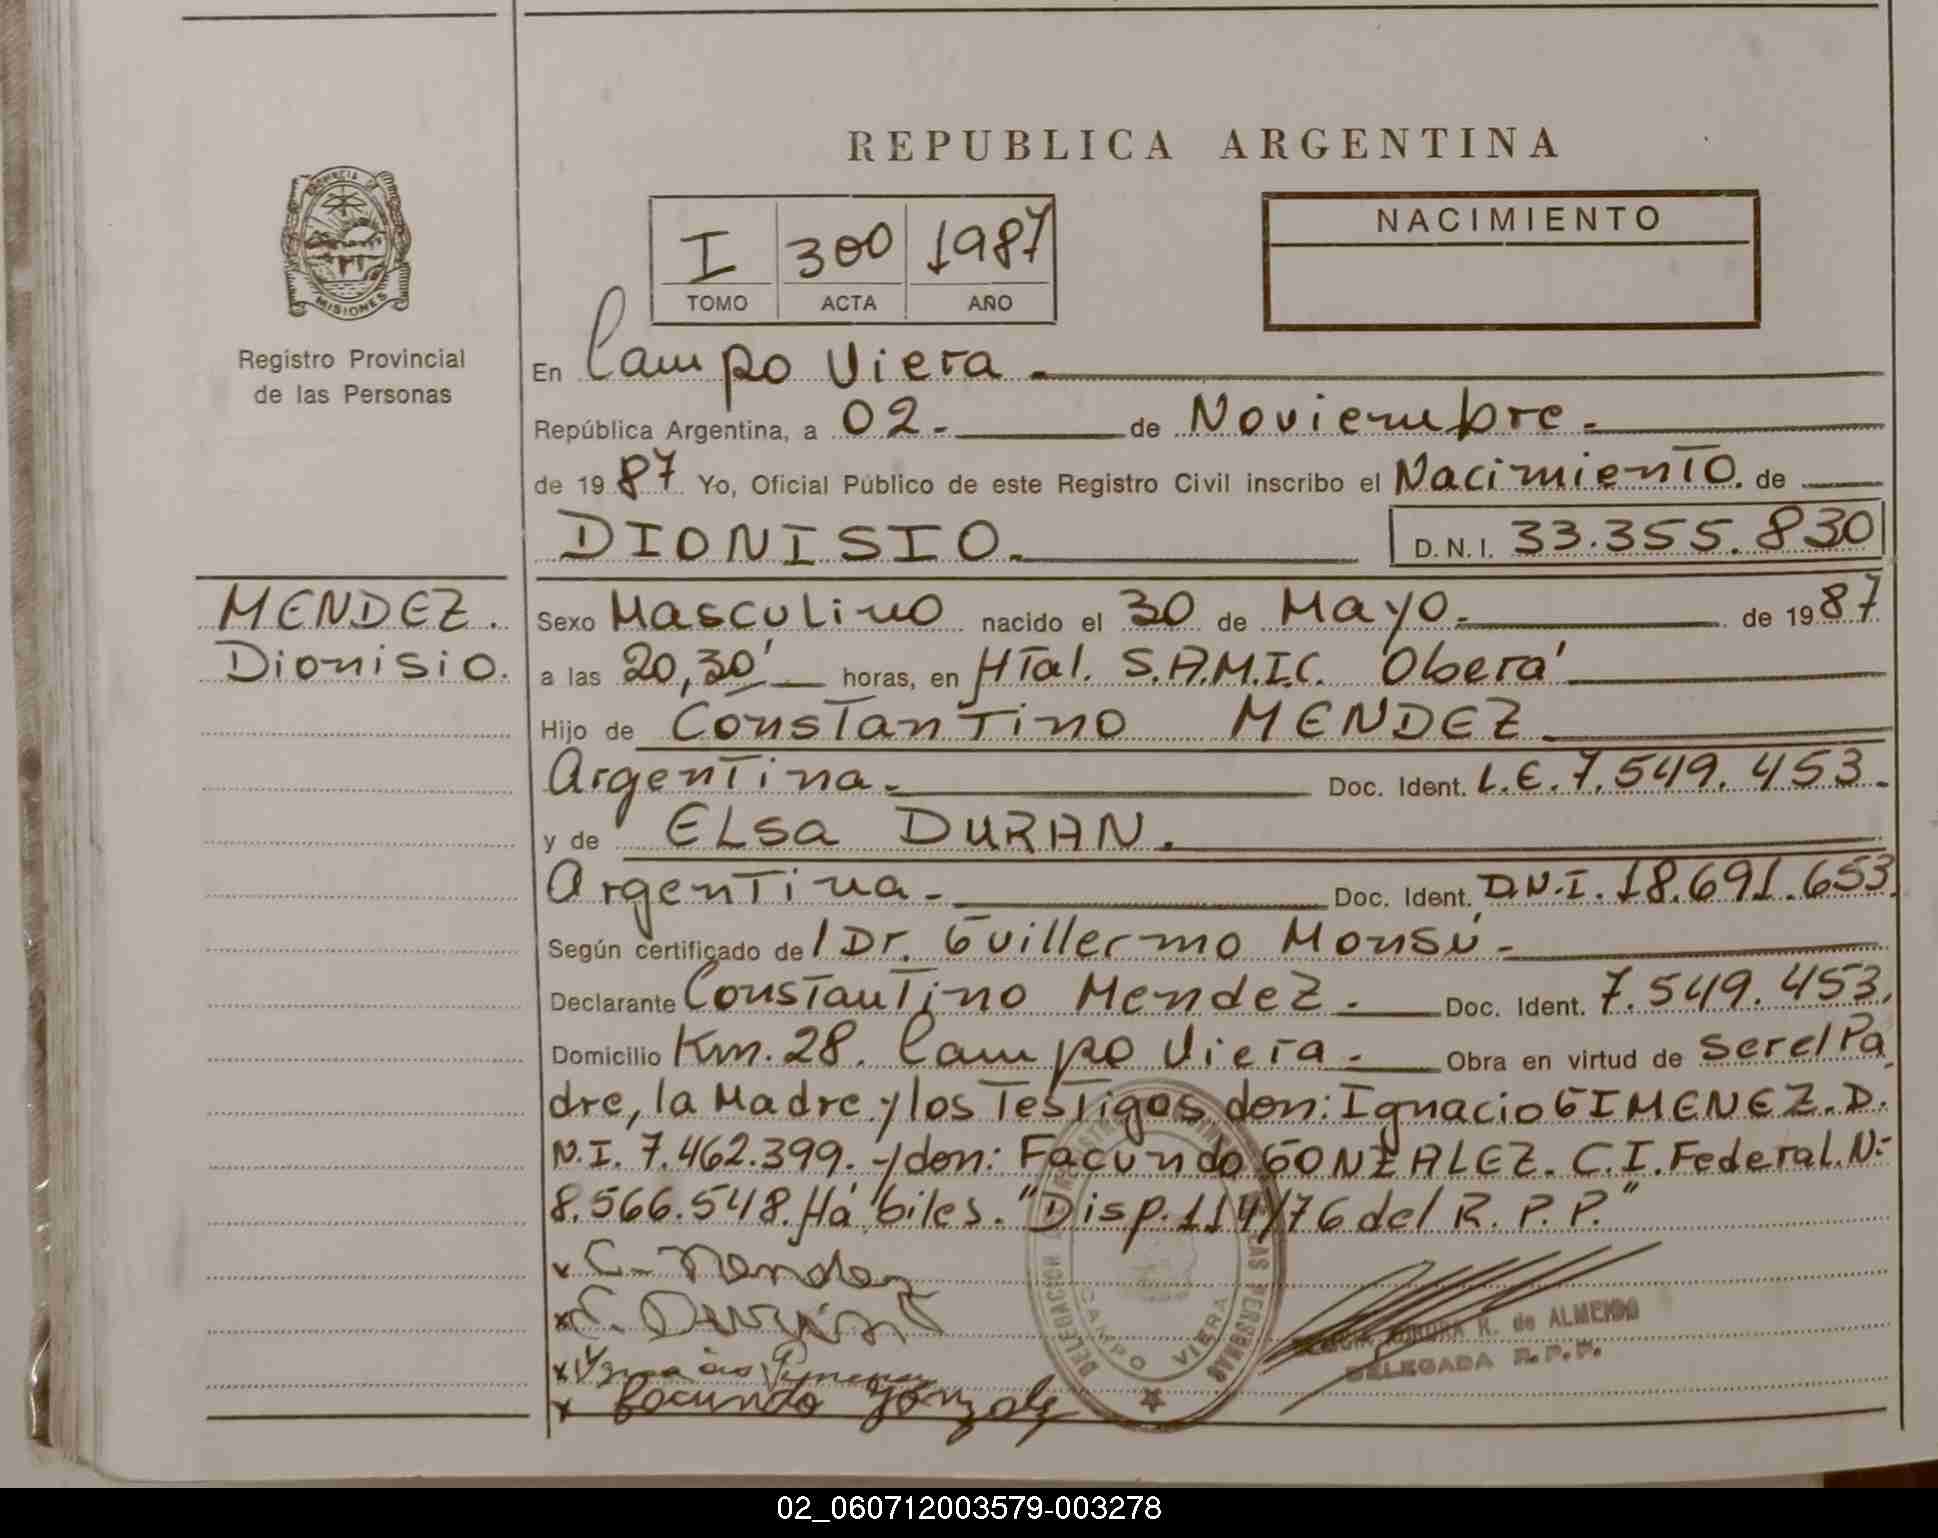 REPUBLICA ARGENTINA
PROVINCIA DE
MISIONES
Registro Provincial
de las Personas
I 300 1987
TOMO ACTA AÑO
NACIMIENTO
En Campo Viera.
República Argentina, a 02. de Noviembre.
de 1987 Yo, Oficial Público de este Registro Civil inscribo el Nacimiento. de
DIONISIO. D.N.I. 33.355.830
MENDEZ.
Dionisio.
Sexo Masculino nacido el 30 de Mayo. de 1987
a las 20,30' horas, en HTal. S.A.M.I.C. Oberá
Hijo de Constantino MENDEZ
Argentina. Doc. Ident. L.E. 7.549.453.
y de ELSA DURAN.
Argentina. Doc. Ident. D.N.I. 18.691.653.
Según certificado del Dr. Guillermo Monsú.
Declarante Constantino Mendez. Doc. Ident. 7.549.453.
Domicilio Km. 28. Campo Viera. Obra en virtud de ser el Pa
dre, la Madre y los Testigos don: Ignacio GIMENEZ. D.
N.I. 7.462.399. y don: Facundo GONZALEZ. C.I. Federal. N:
8.566.548. Hábiles. "Disp. 114/76 del R.P.P."
x C. Mendez
x E. Duran
x Ygnacio Gimenez
x Facundo Gonzalez
DELEGACION
LAS PERSONAS
CAMPO VIERA
K. de ALMEIDA
DELEGADA R.P.P.
02_060712003579-003278